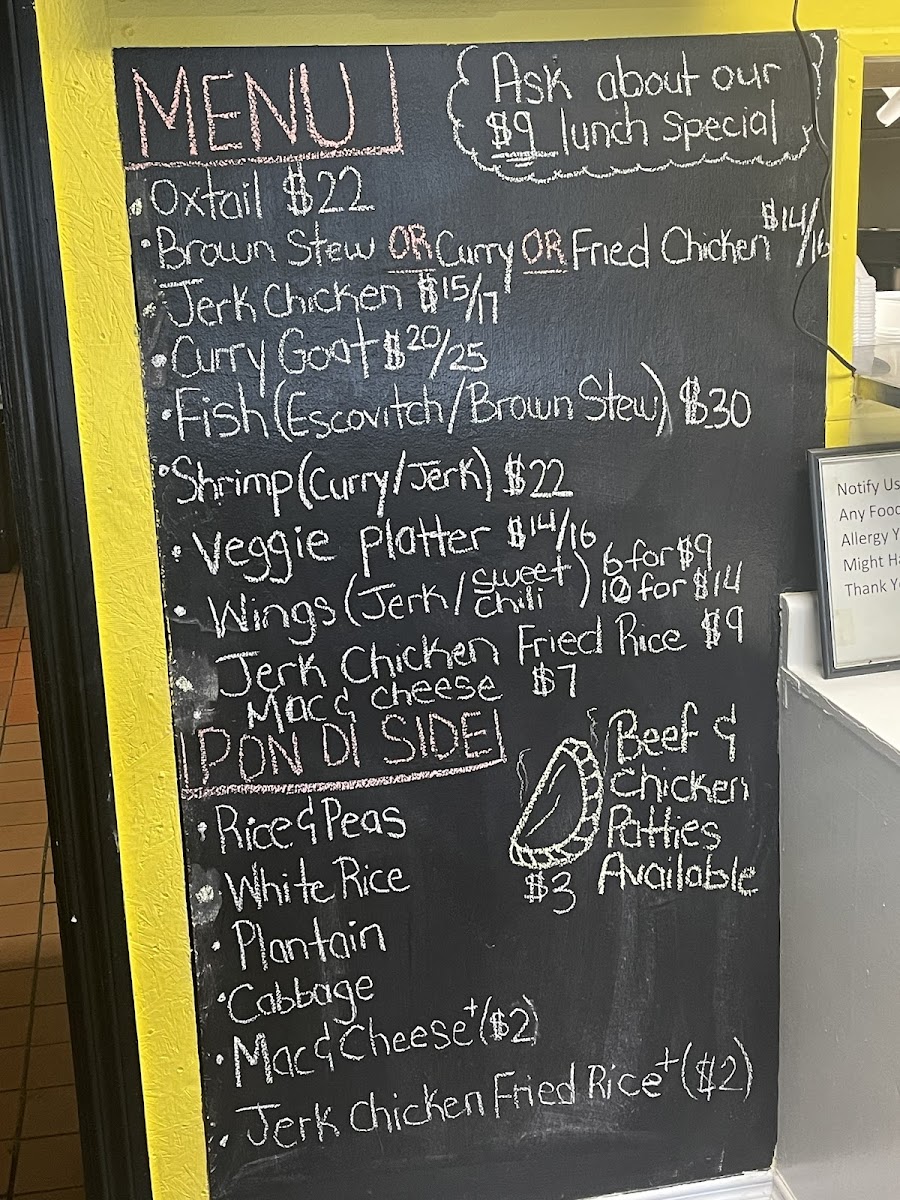 MENU
Ask about our
$9 lunch special
• Oxtail $22
• Brown Stew OR Curry OR Fried Chicken $14/16
• Jerk Chicken $15/17
• Curry Goat $20/25
• Fish (Escovitch/Brown Stew) $30
• Shrimp (Curry/Jerk) $22
• Veggie platter $14/16
• Wings (Jerk/sweet chili) 6 for $9
10 for $14
• Jerk Chicken Fried Rice $9
Mac & cheese $7
PON DI SIDE
Beef &
Chicken
Patties
Available
$3
• Rice & Peas
• White Rice
• Plantain
• Cabbage
• Mac & Cheese+ ($2)
• Jerk chicken Fried Rice+ ($2)
Notify Us
Any Foo
Allergy Y
Might Ha
Thank Yo